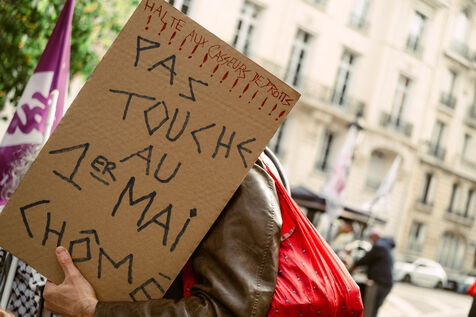 HALTE AUX CASSEURS DE DROITS
!!!!!!!!!!!!!!!!
PAS
TOUCHE
AU
1ER MAI
CHÔMÉ